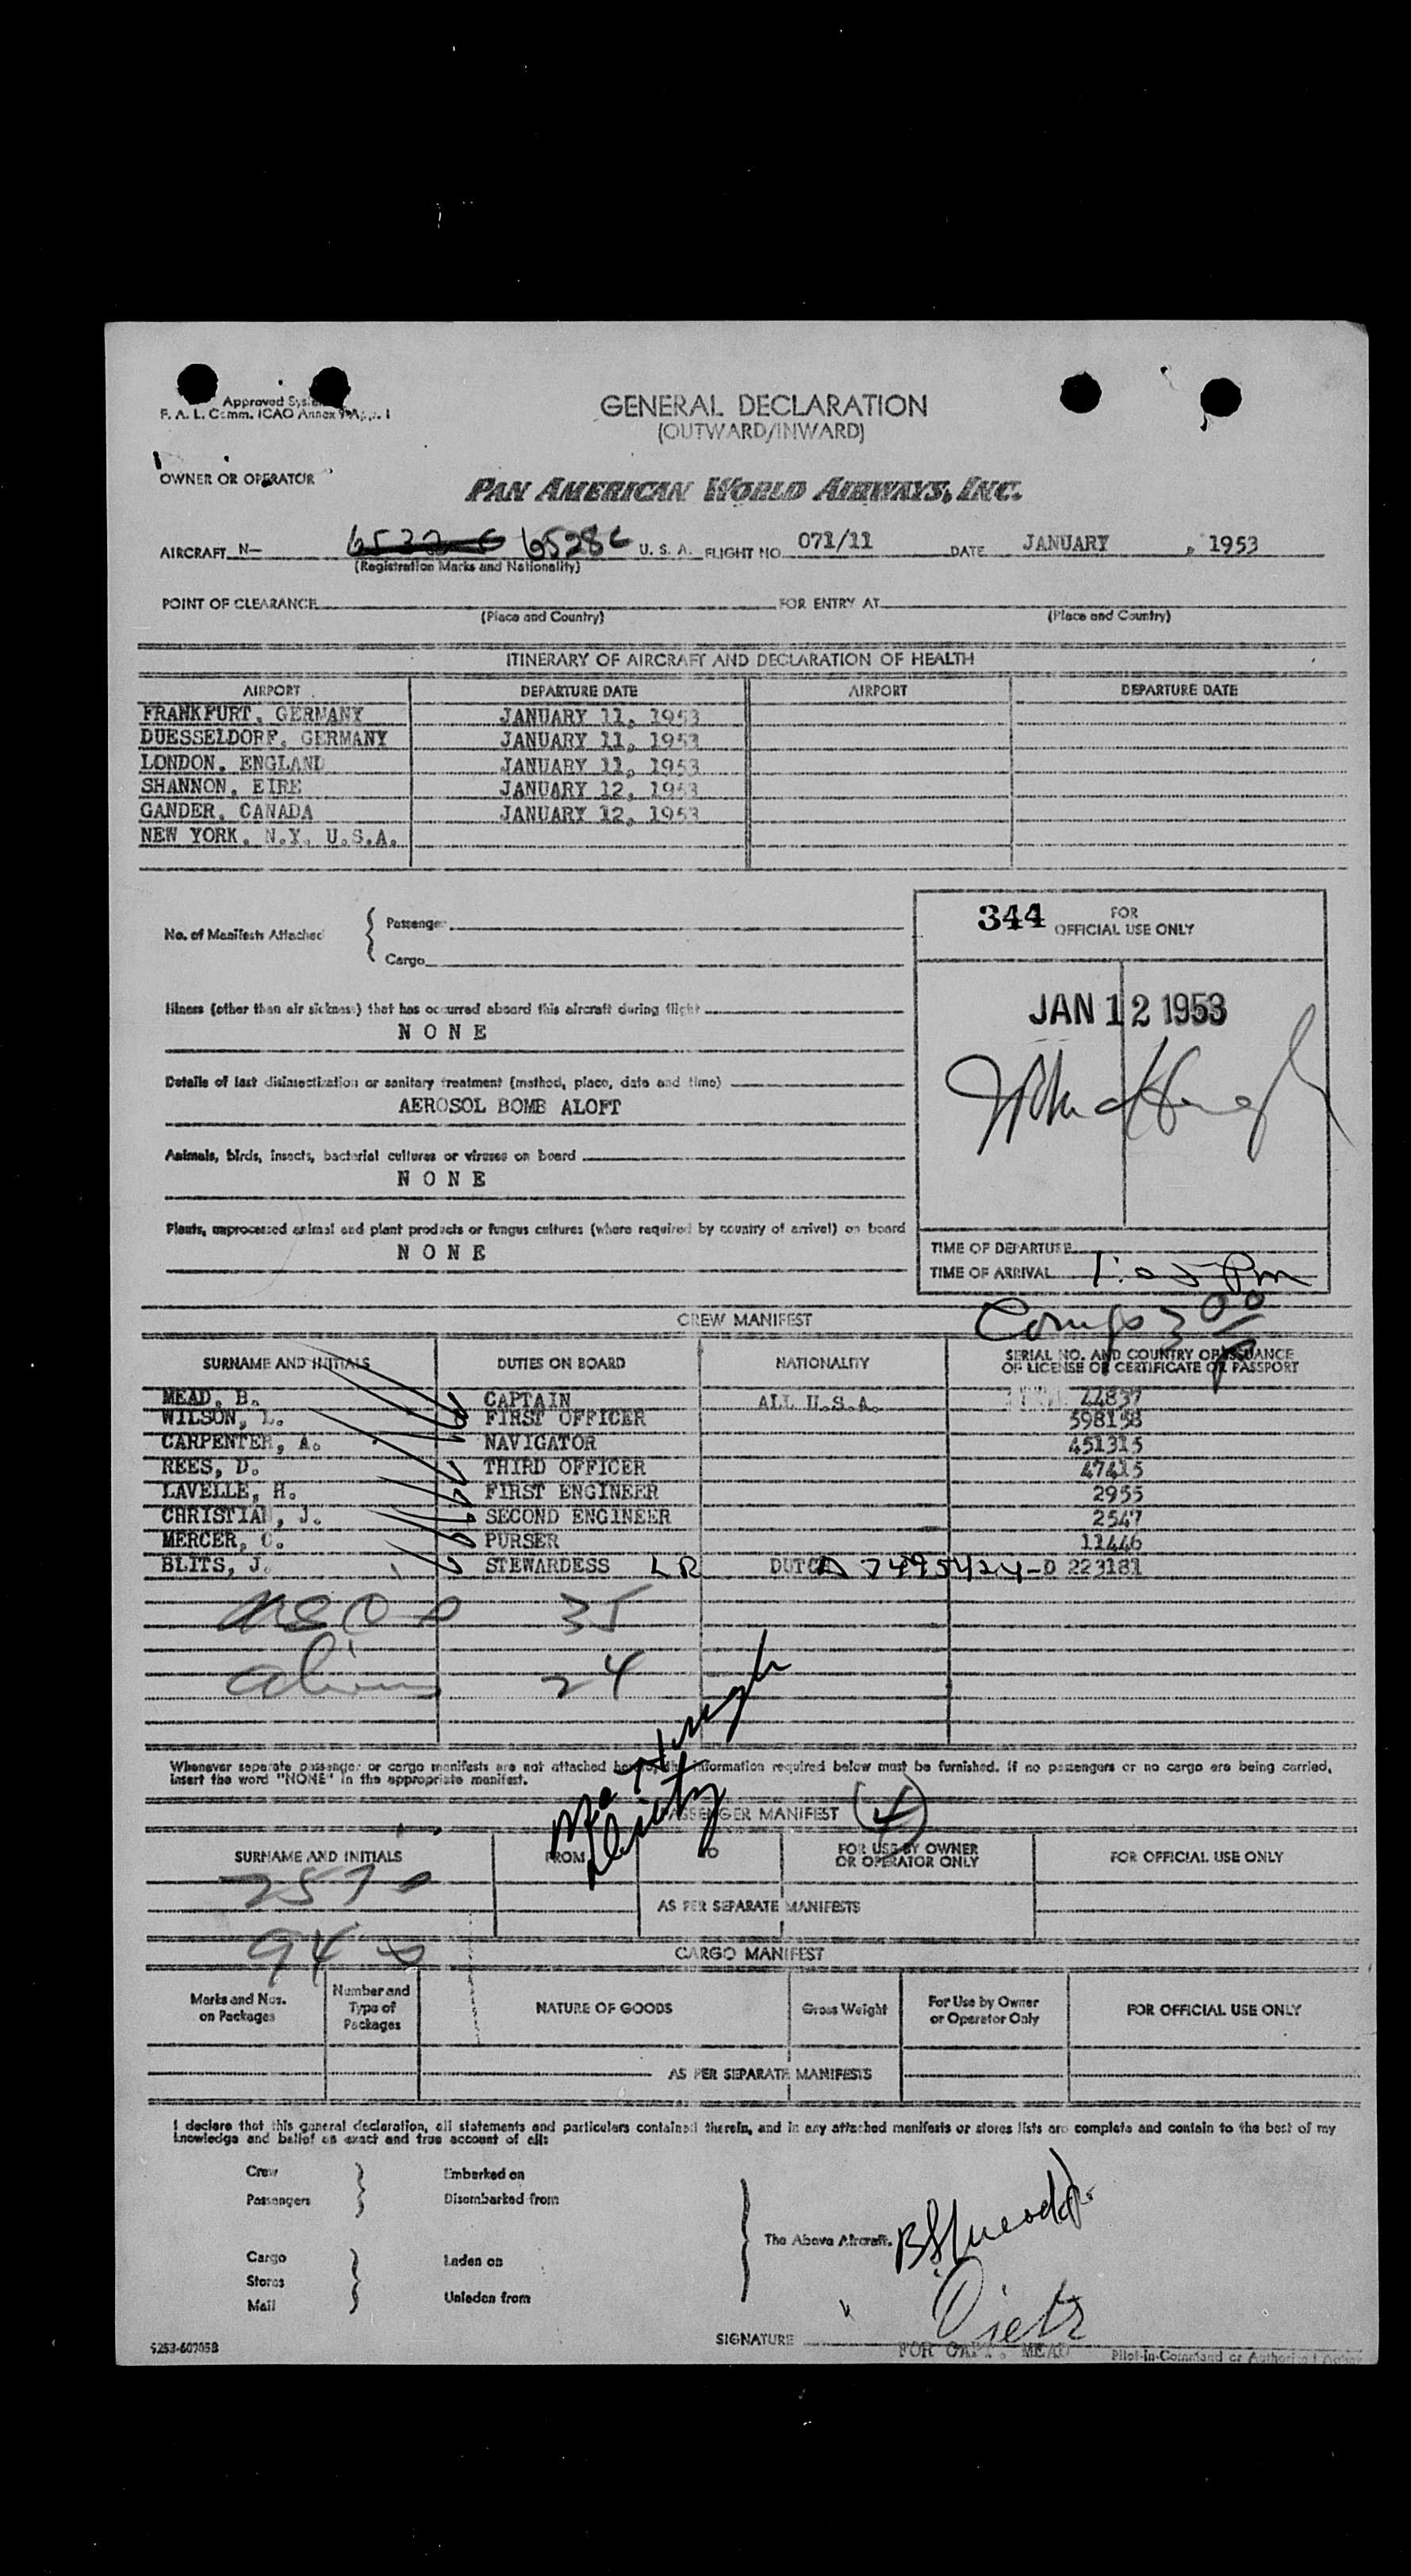 Approved
F. A. L. Comm. ICAO Annex 9 App. I
GENERAL DECLARATION
(OUTWARD/INWARD)
OWNER OR OPERATOR
PAN AMERICAN WORLD AIRWAYS, INC.
AIRCRAFT N- 6528C U. S. A. FLIGHT NO. 071/11 DATE JANUARY , 1953
(Registration Marks and Nationality)
POINT OF CLEARANCE FOR ENTRY AT
(Place and Country) (Place and Country)
ITINERARY OF AIRCRAFT AND DECLARATION OF HEALTH
AIRPORT DEPARTURE DATE AIRPORT DEPARTURE DATE
FRANKFURT, GERMANY JANUARY 11, 1953
DUESSELDORF, GERMANY JANUARY 11, 1953
LONDON, ENGLAND JANUARY 11, 1953
SHANNON, EIRE JANUARY 12, 1953
GANDER, CANADA JANUARY 12, 1953
NEW YORK, N.Y. U.S.A.
No. of Manifests Attached { Passenger
Cargo
344 FOR OFFICIAL USE ONLY
JAN 12 1953
Illness (other than air sickness) that has occurred aboard this aircraft during flight
N O N E
Details of last disinsectization or sanitary treatment (method, place, date and time)
AEROSOL BOMB ALOFT
Animals, birds, insects, bacterial cultures or viruses on board
N O N E
Plants, unprocessed animal and plant products or fungus cultures (where required by country of arrival) on board
N O N E
TIME OF DEPARTURE
TIME OF ARRIVAL 1:05 Pm
CREW MANIFEST
SURNAME AND INITIALS DUTIES ON BOARD NATIONALITY SERIAL NO. AND COUNTRY OF ISSUANCE OF LICENSE OR CERTIFICATE OR PASSPORT
MEAD, B. CAPTAIN ALL U.S.A. 22857
WILSON, L. FIRST OFFICER 598158
CARPENTER, A. NAVIGATOR 451315
REES, D. THIRD OFFICER 47415
LAVELLE, H. FIRST ENGINEER 2955
CHRISTIAN, J. SECOND ENGINEER 2547
MERCER, C. PURSER 11446
BLITS, J. STEWARDESS LR DUTCH A 7495424-D 223181
35
aliens 24
Whenever separate passenger or cargo manifests are not attached hereto, the information required below must be furnished. If no passengers or no cargo are being carried,
insert the word "NONE" in the appropriate manifest.
PASSENGER MANIFEST 4
SURNAME AND INITIALS FROM TO FOR USE BY OWNER OR OPERATOR ONLY FOR OFFICIAL USE ONLY
AS PER SEPARATE MANIFESTS
94
CARGO MANIFEST
Marks and Nos. on Packages Number and Type of Packages NATURE OF GOODS Gross Weight For Use by Owner or Operator Only FOR OFFICIAL USE ONLY
AS PER SEPARATE MANIFESTS
I declare that this general declaration, all statements and particulars contained therein, and in any attached manifests or stores lists are complete and contain to the best of my
knowledge and belief an exact and true account of all:
Crew Embarked on
Passengers Disembarked from
The Above Aircraft.
Cargo Laden on
Stores
Mail Unladen from
SIGNATURE Dietz
FOR CAPT. MEAD Pilot-in-Command or Authorized Agent